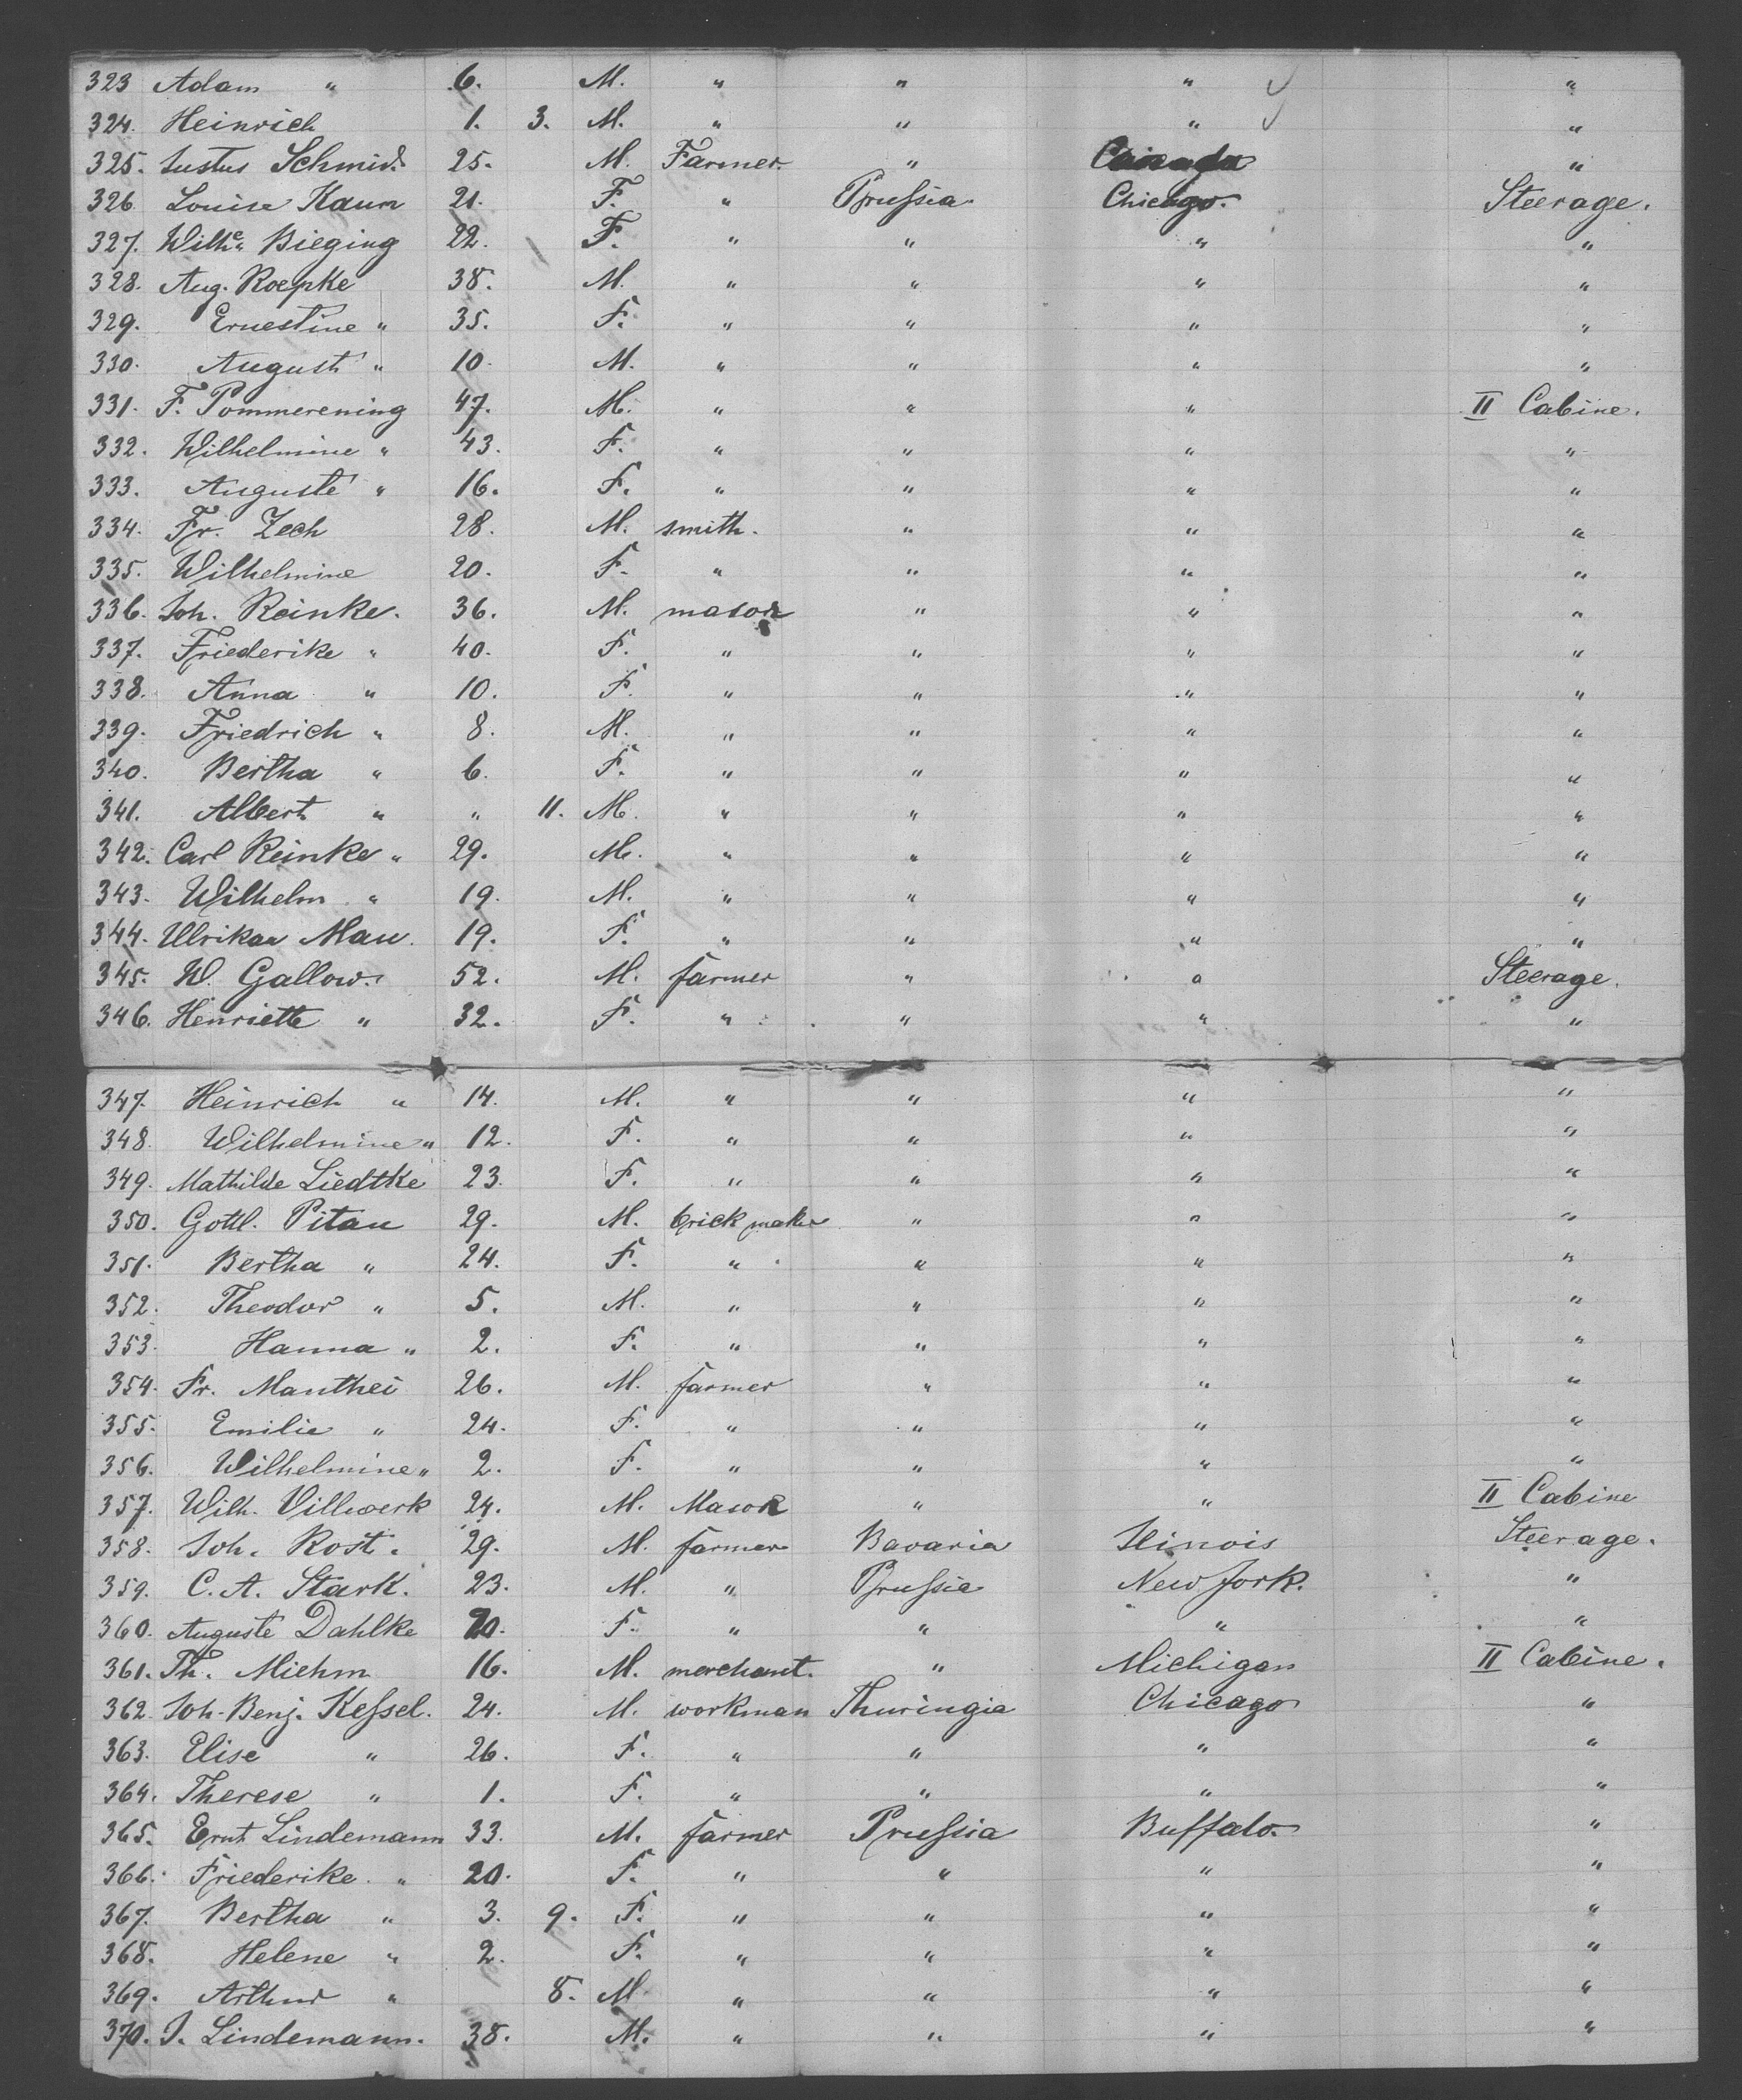 323 Adam " 6. M. " " " "
324. Heinrich 1. 3. M. " " " "
325. Justus Schmid. 25. M. Farmer. " "
326. Louise Kaun 21. F. " Prussia. Chicago. Steerage.
327. Wilhe. Bieging 22. F. " " " "
328. Aug. Roepke 38. M. " " " "
329. Ernestine " 35. F. " " " "
330. August " 10. M. " " " "
331. F. Pommerening 47. M. " " " II Cabine.
332. Wilhelmine " 43. F. " " " "
333. Auguste " 16. F. " " " "
334. Fr. Zech 28. M. smith. " " "
335. Wilhelmine 20. F. " " " "
336. Joh. Reinke. 36. M. mason " " "
337. Friederike " 40. F. " " " "
338. Anna " 10. F. " " " "
339. Friedrich " 8. M. " " " "
340. Bertha " 6. F. " " " "
341. Albert " " 11. M. " " " "
342. Carl Reinke " 29. M. " " " "
343. Wilhelm " 19. M. " " " "
344. Ulrikae Mau. 19. F. " " " "
345. W. Gallow. 52. M. farmer " " Steerage.
346. Henriette " 32. F. " " " "
347. Heinrich " 14. M. " " " "
348. Wilhelmine " 12. F. " " " "
349. Mathilde Liedtke 23. F. " " " "
350. Gottl. Pitau 29. M. brick maker " " "
351. Bertha " 24. F. " " " "
352. Theodor " 5. M. " " " "
353. Hanna " 2. F. " " " "
354. Fr. Manthei 26. M. farmer " " "
355. Emilie " 24. F. " " " "
356. Wilhelmine " 2. F. " " " "
357. Wilh. Villwerk 24. M. Mason " " II Cabine
358. Joh. Rost. 29. M. farmer Bavaria Ilinois Steerage.
359. C. A. Stark. 23. M. " Prussia New York. "
360. Auguste Dahlke 20. F. " " " "
361. Th. Miehm 16. M. merchant. " Michigan II Cabine.
362. Joh. Benj. Kessel. 24. M. workman Thuringia Chicago "
363. Elise " 26. F. " " " "
364. Therese " 1. F. " " " "
365. Ernt Lindemann 33. M. farmer Prussia Buffalo. "
366. Friederike " 20. F. " " " "
367. Bertha " 3. 9. F. " " " "
368. Helene " 2. F. " " " "
369. Arthur " 8. M. " " " "
370. J. Lindemann. 38. M. " " " "